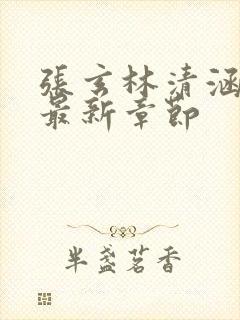 張玄林清涵
最新章節
半盞茗香